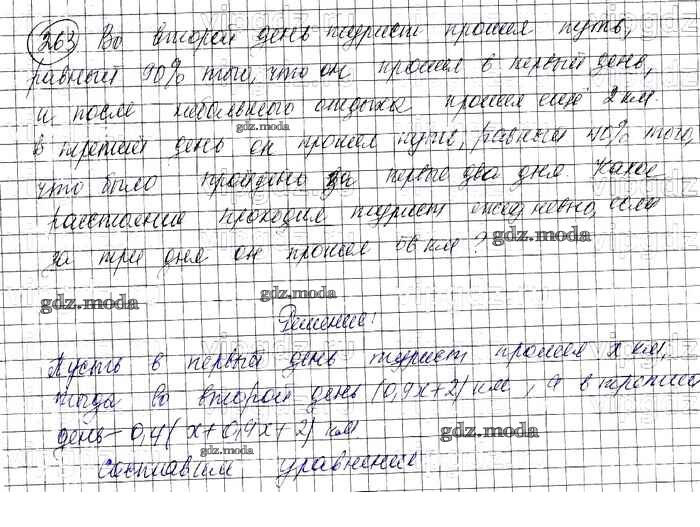 263 Во второй день турист прошел путь,
равный 90% того, что он прошел в первый день,
и после небольшого отдыха прошел ещё 2 км.
gdz.moda
В третий день он прошел путь, равный 40% того,
что было пройдено за первые два дня. Какое
расстояние проходил турист ежедневно, если
за три дня он прошел 56 км?
gdz.moda
gdz.moda
gdz.moda
Решение:
Пусть в первый день турист прошел x км,
тогда во второй день (0,9x+2) км, а в третий
день - 0,4(x+0,9x+2) км
gdz.moda
gdz.moda
Составим уравнение